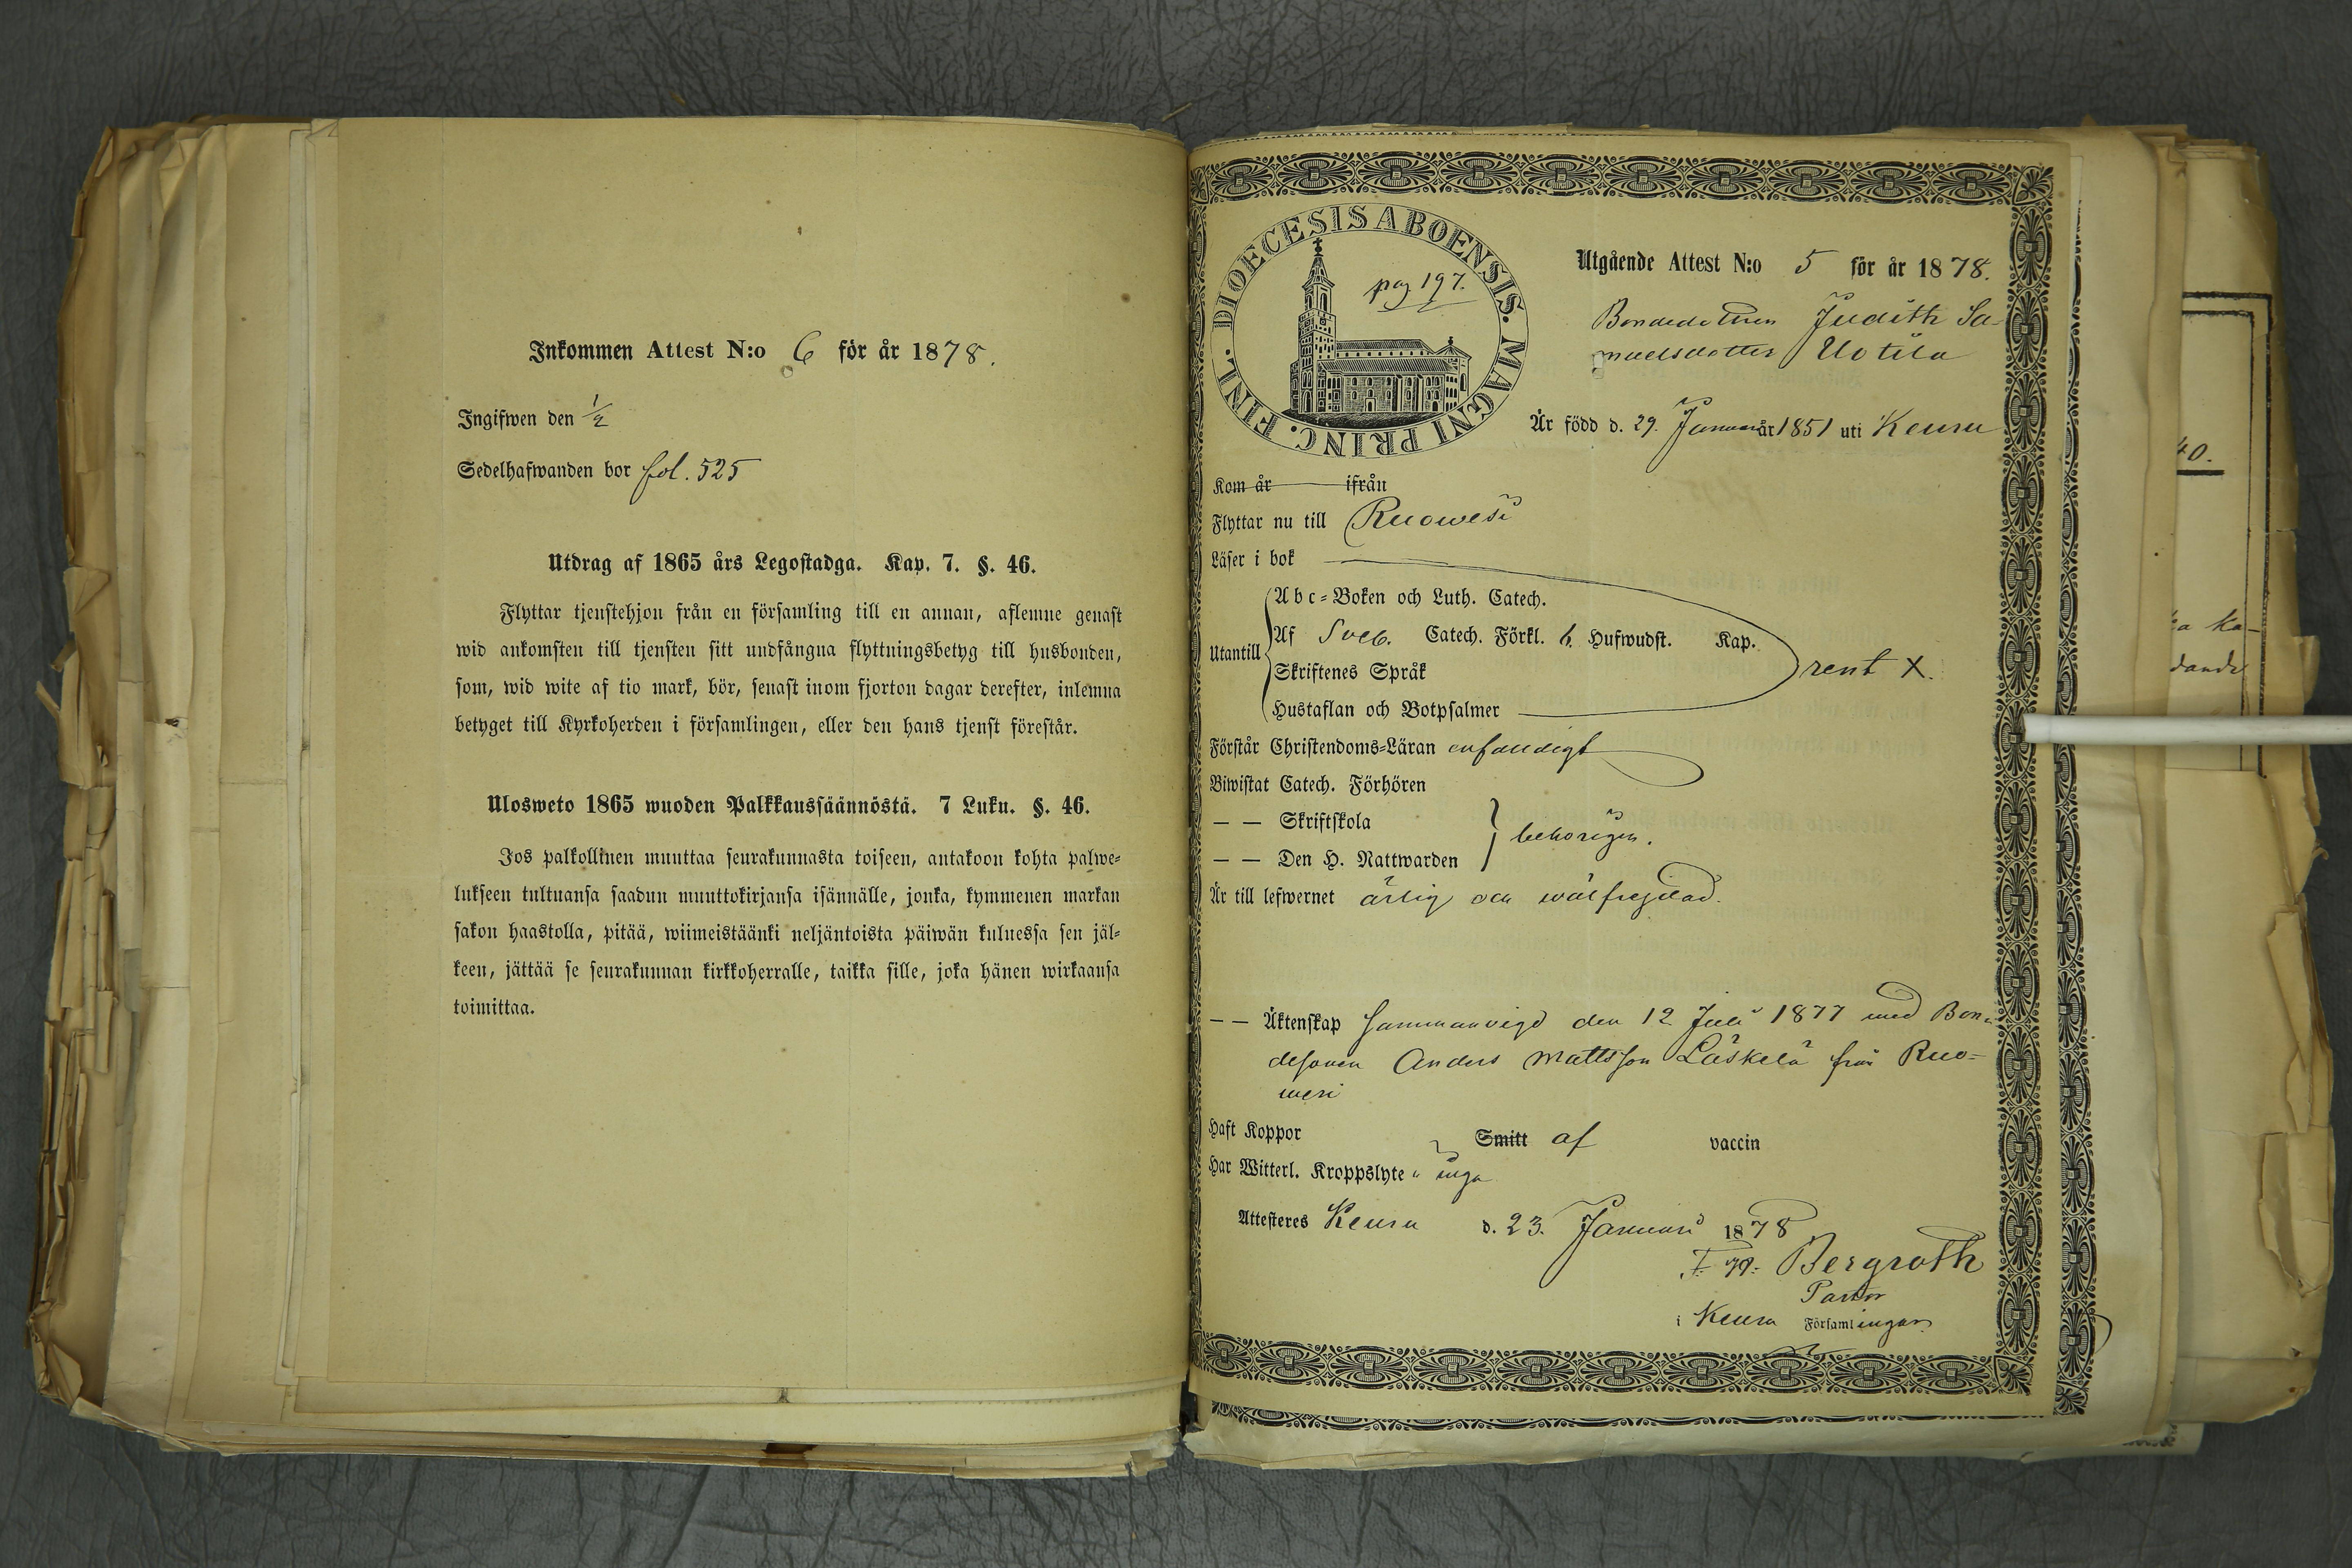 Inkommen Attest N:o 6 för år 1878.
Ingifwen den 1/2
Sedelhafwanden bor fol. 525
Utdrag af 1865 års Legostadga. Kap. 7. §. 46.
Flyttar tjenstehjon från en församling till en annan, aflemne genast
wid ankomsten till tjensten sitt undfångna flyttningsbetyg till husbonden,
som, wid wite af tio mark, bör, senast inom fjorton dagar derefter, inlemna
betyget till Kyrkoherden i församlingen, eller den hans tjenst förestår.
Ulosweto 1865 wuoden Palkkaussäännöstä. 7 Luku. §. 46.
Jos palkollinen muuttaa seurakunnasta toiseen, antakoon kohta palwe-
lukseen tultuansa saadun muuttokirjansa isännälle, jonka, kymmenen markan
sakon haastolla, pitää, wiimeistäänki neljäntoista päiwän kuluessa sen jäl-
keen, jättää se seurakunnan kirkkoherralle, taikka sille, joka hänen wirkaansa
toimittaa.
DIOECESIS ABOENSIS. MAGNI PRINC. FINL.
pag 197.
Utgående Attest N:o 5 för år 1878.
Bondedottren Judith Sa-
muelsdotter Uotila
Är född d. 29. Januari år 1851 uti Keuru
Kom år ifrån
Flyttar nu till Ruowesi
Läser i bok
Utantill
Abc-Boken och Luth. Catech.
Af Sveb. Catech. Förkl. 6. Hufwudst. Kap.
Skriftenes Språk
Hustaflan och Botpsalmer
rent X.
Förstår Christendoms-Läran enfaldigt
Biwistat Catech. Förhören
— — Skriftskola
— — Den H. Nattwarden
behörigen.
Är till lefwernet ärlig och wälfrejdad.
— — Äktenskap sammanvigd den 12 Juli 1877 med Bon-
desonen Anders Mattsson Läskelä från Ruo-
wesi
Haft Koppor Smitt af vaccin
Har Witterl. Kroppslyte inga
Attesteres Keuru d. 23. Januari 1878
Bergroth
Pastor
i Keuru Församlingar
40.